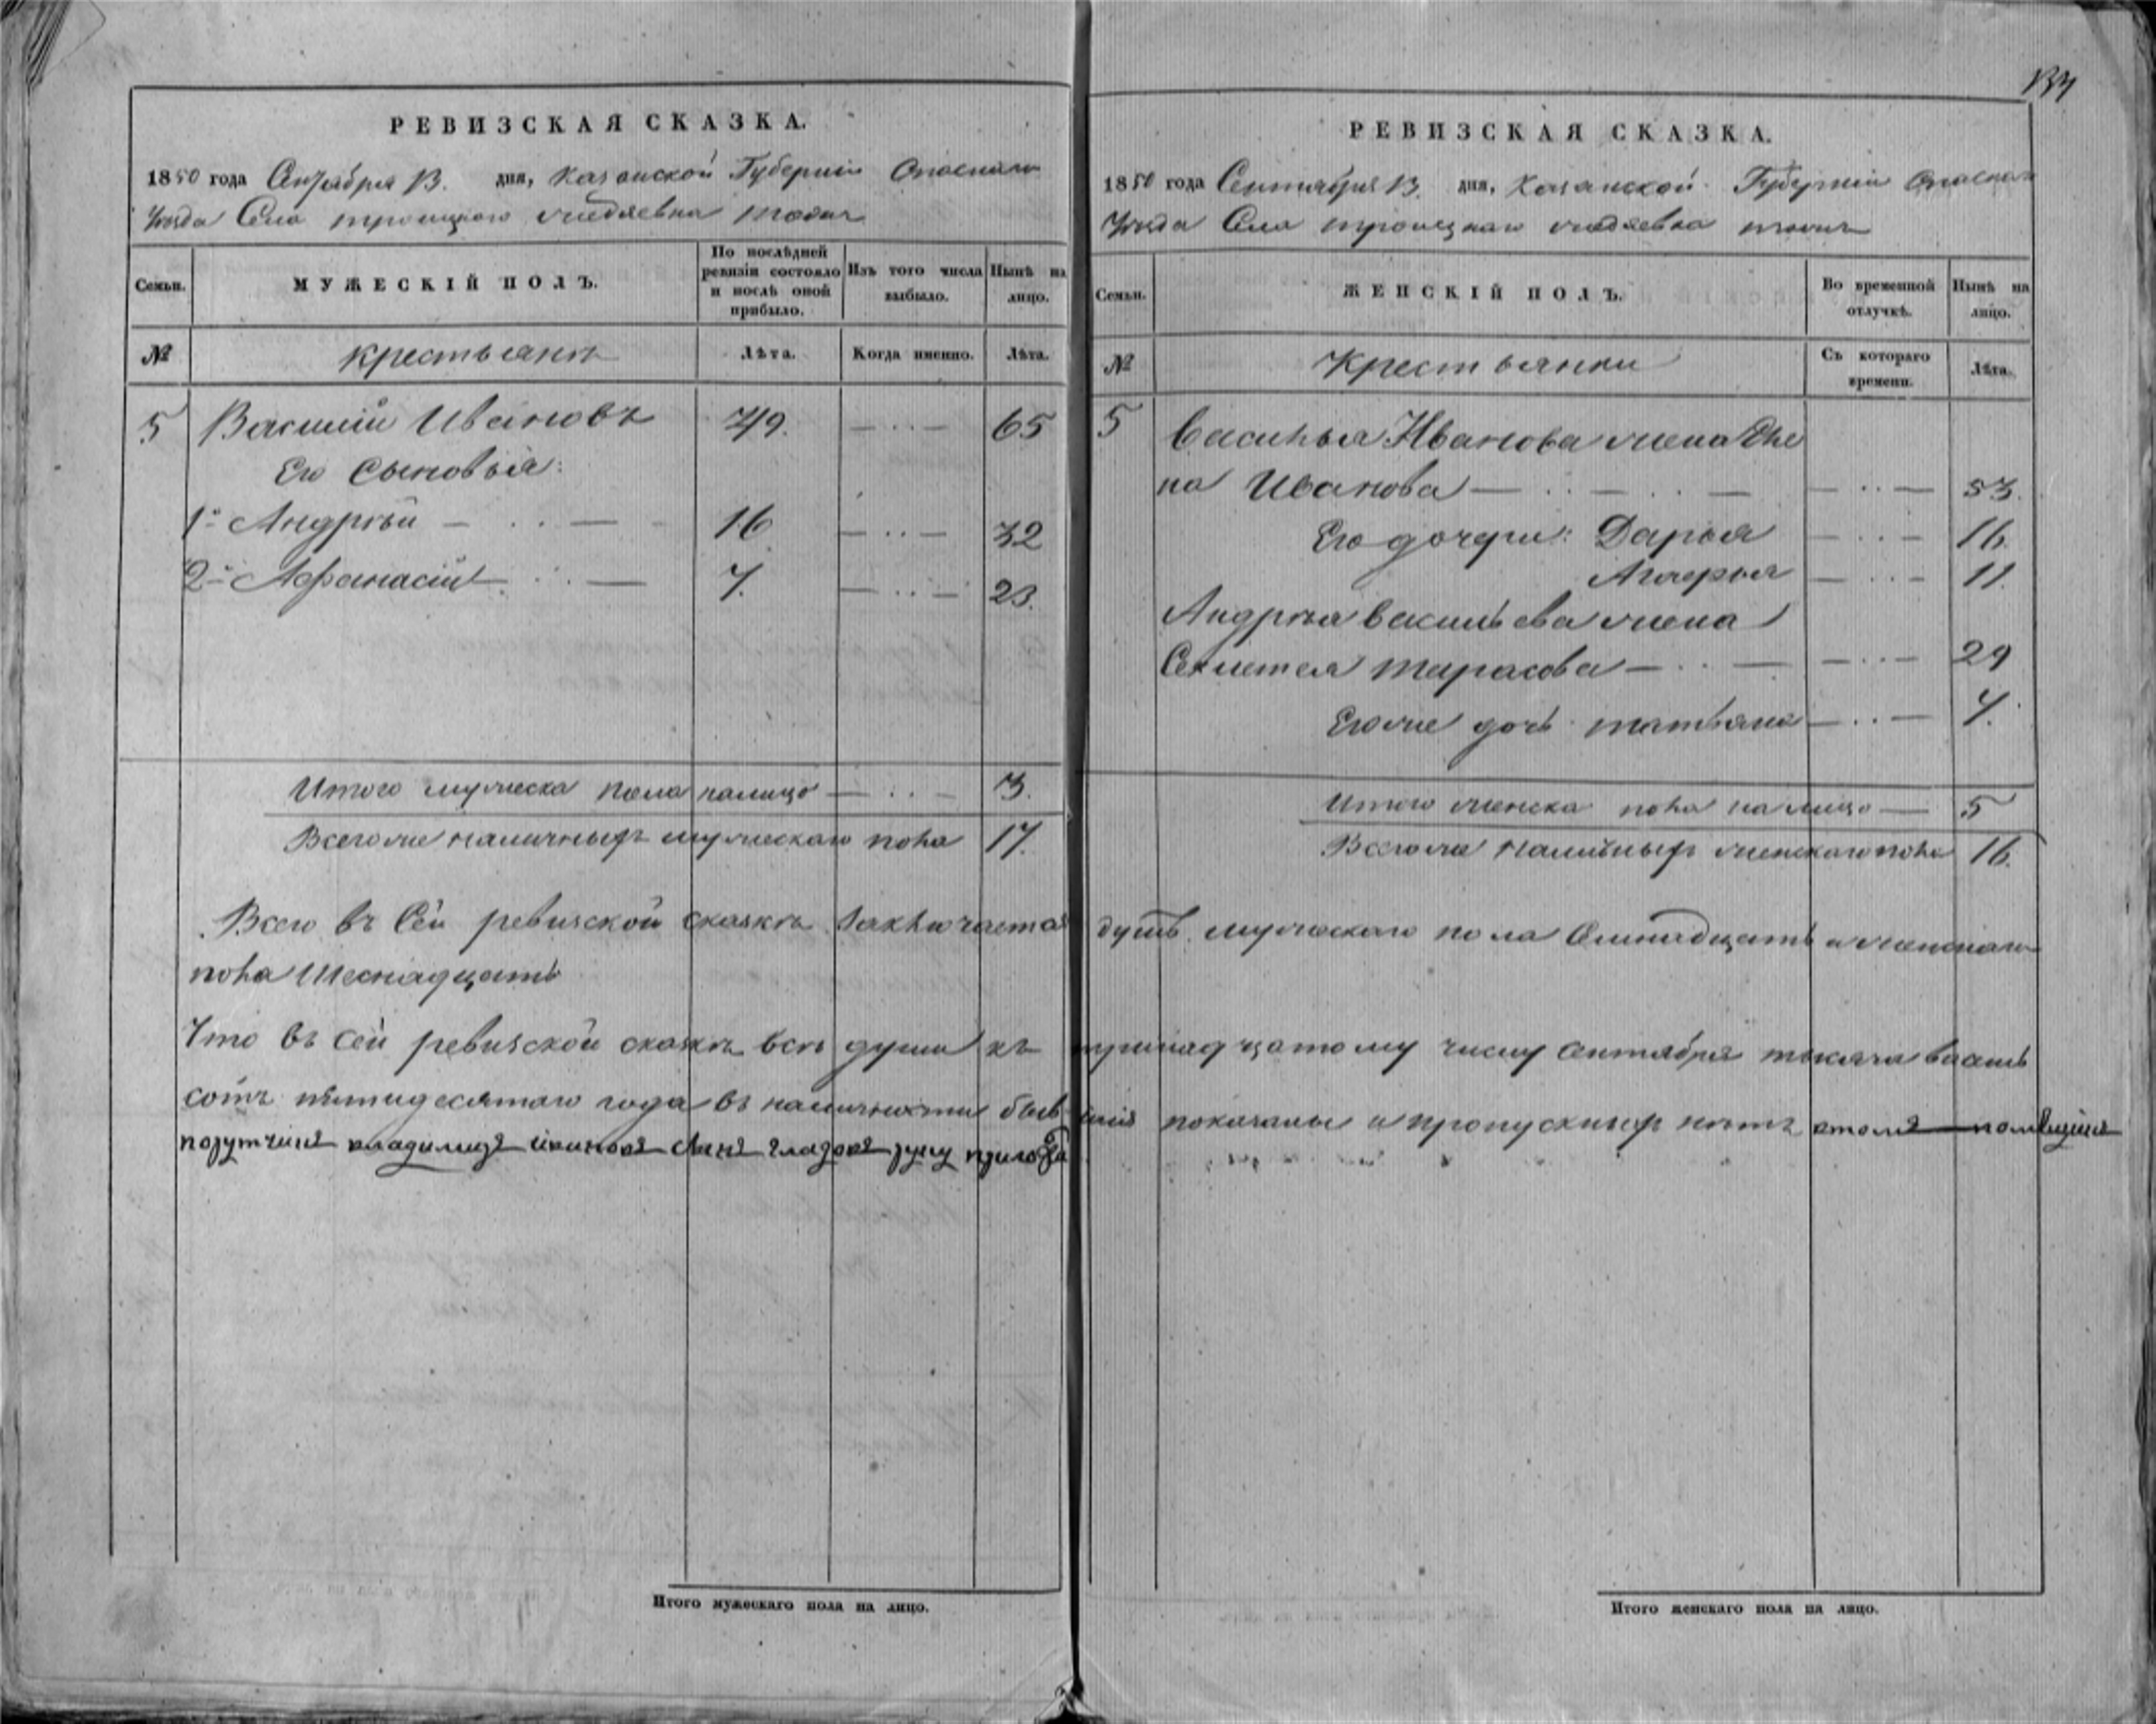 134
РЕВИЗСКАЯ СКАЗКА.
1850 года Сентября 13. дня, Казанской Губернии Спаскаго
Уезда Села Троицкаго тожъ
Семьи.
МУЖЕСКІЙ ПОЛЪ.
По послѣдней ревизіи состояло и послѣ оной прибыло.
Изъ того числа выбыло.
Нынѣ на лицо.
№
крестьянъ
Лѣта.
Когда именно.
Лѣта.
5 Василий Ивановъ 49. 65
Его Сыновья:
1й Андрѣй 16 32
2й Афанасий 7. 23.
Итого мужеска пола налицо 3.
Всегоже наличныхъ мужескаго пола 17.
РЕВИЗСКАЯ СКАЗКА.
1850 года Сентября 13. дня, Казанской Губернии Спаскаго
Уезда Села Троицкаго тожъ
Семьи.
ЖЕНСКІЙ ПОЛЪ.
Во временной отлучкѣ.
Нынѣ на лицо.
№
Крестьянки
Съ котораго времени.
Лѣта.
5 Василья Иванова жена Еле
на Иванова 53.
Его дочери: Дарья 16.
11.
Андрѣя Васильева жена
Тарасова 29
Егоже дочь татьяна 7.
Итого женска пола налицо 5
Всегоже наличныхъ женскаго пола 16.
Всего въ Сей ревизской сказкѣ заключается душъ мужескаго пола Семнадцать и женскаго
пола Шеснадцать
Что въ сей ревизской сказкѣ всѣ души къ тринадцатому числу Сентября тысяча восемь
сотъ пятидесятаго года въ наличности бывшия показаны и пропускныхъ нѣтъ
Итого мужескаго пола на лицо.
Итого женскаго пола на лицо.